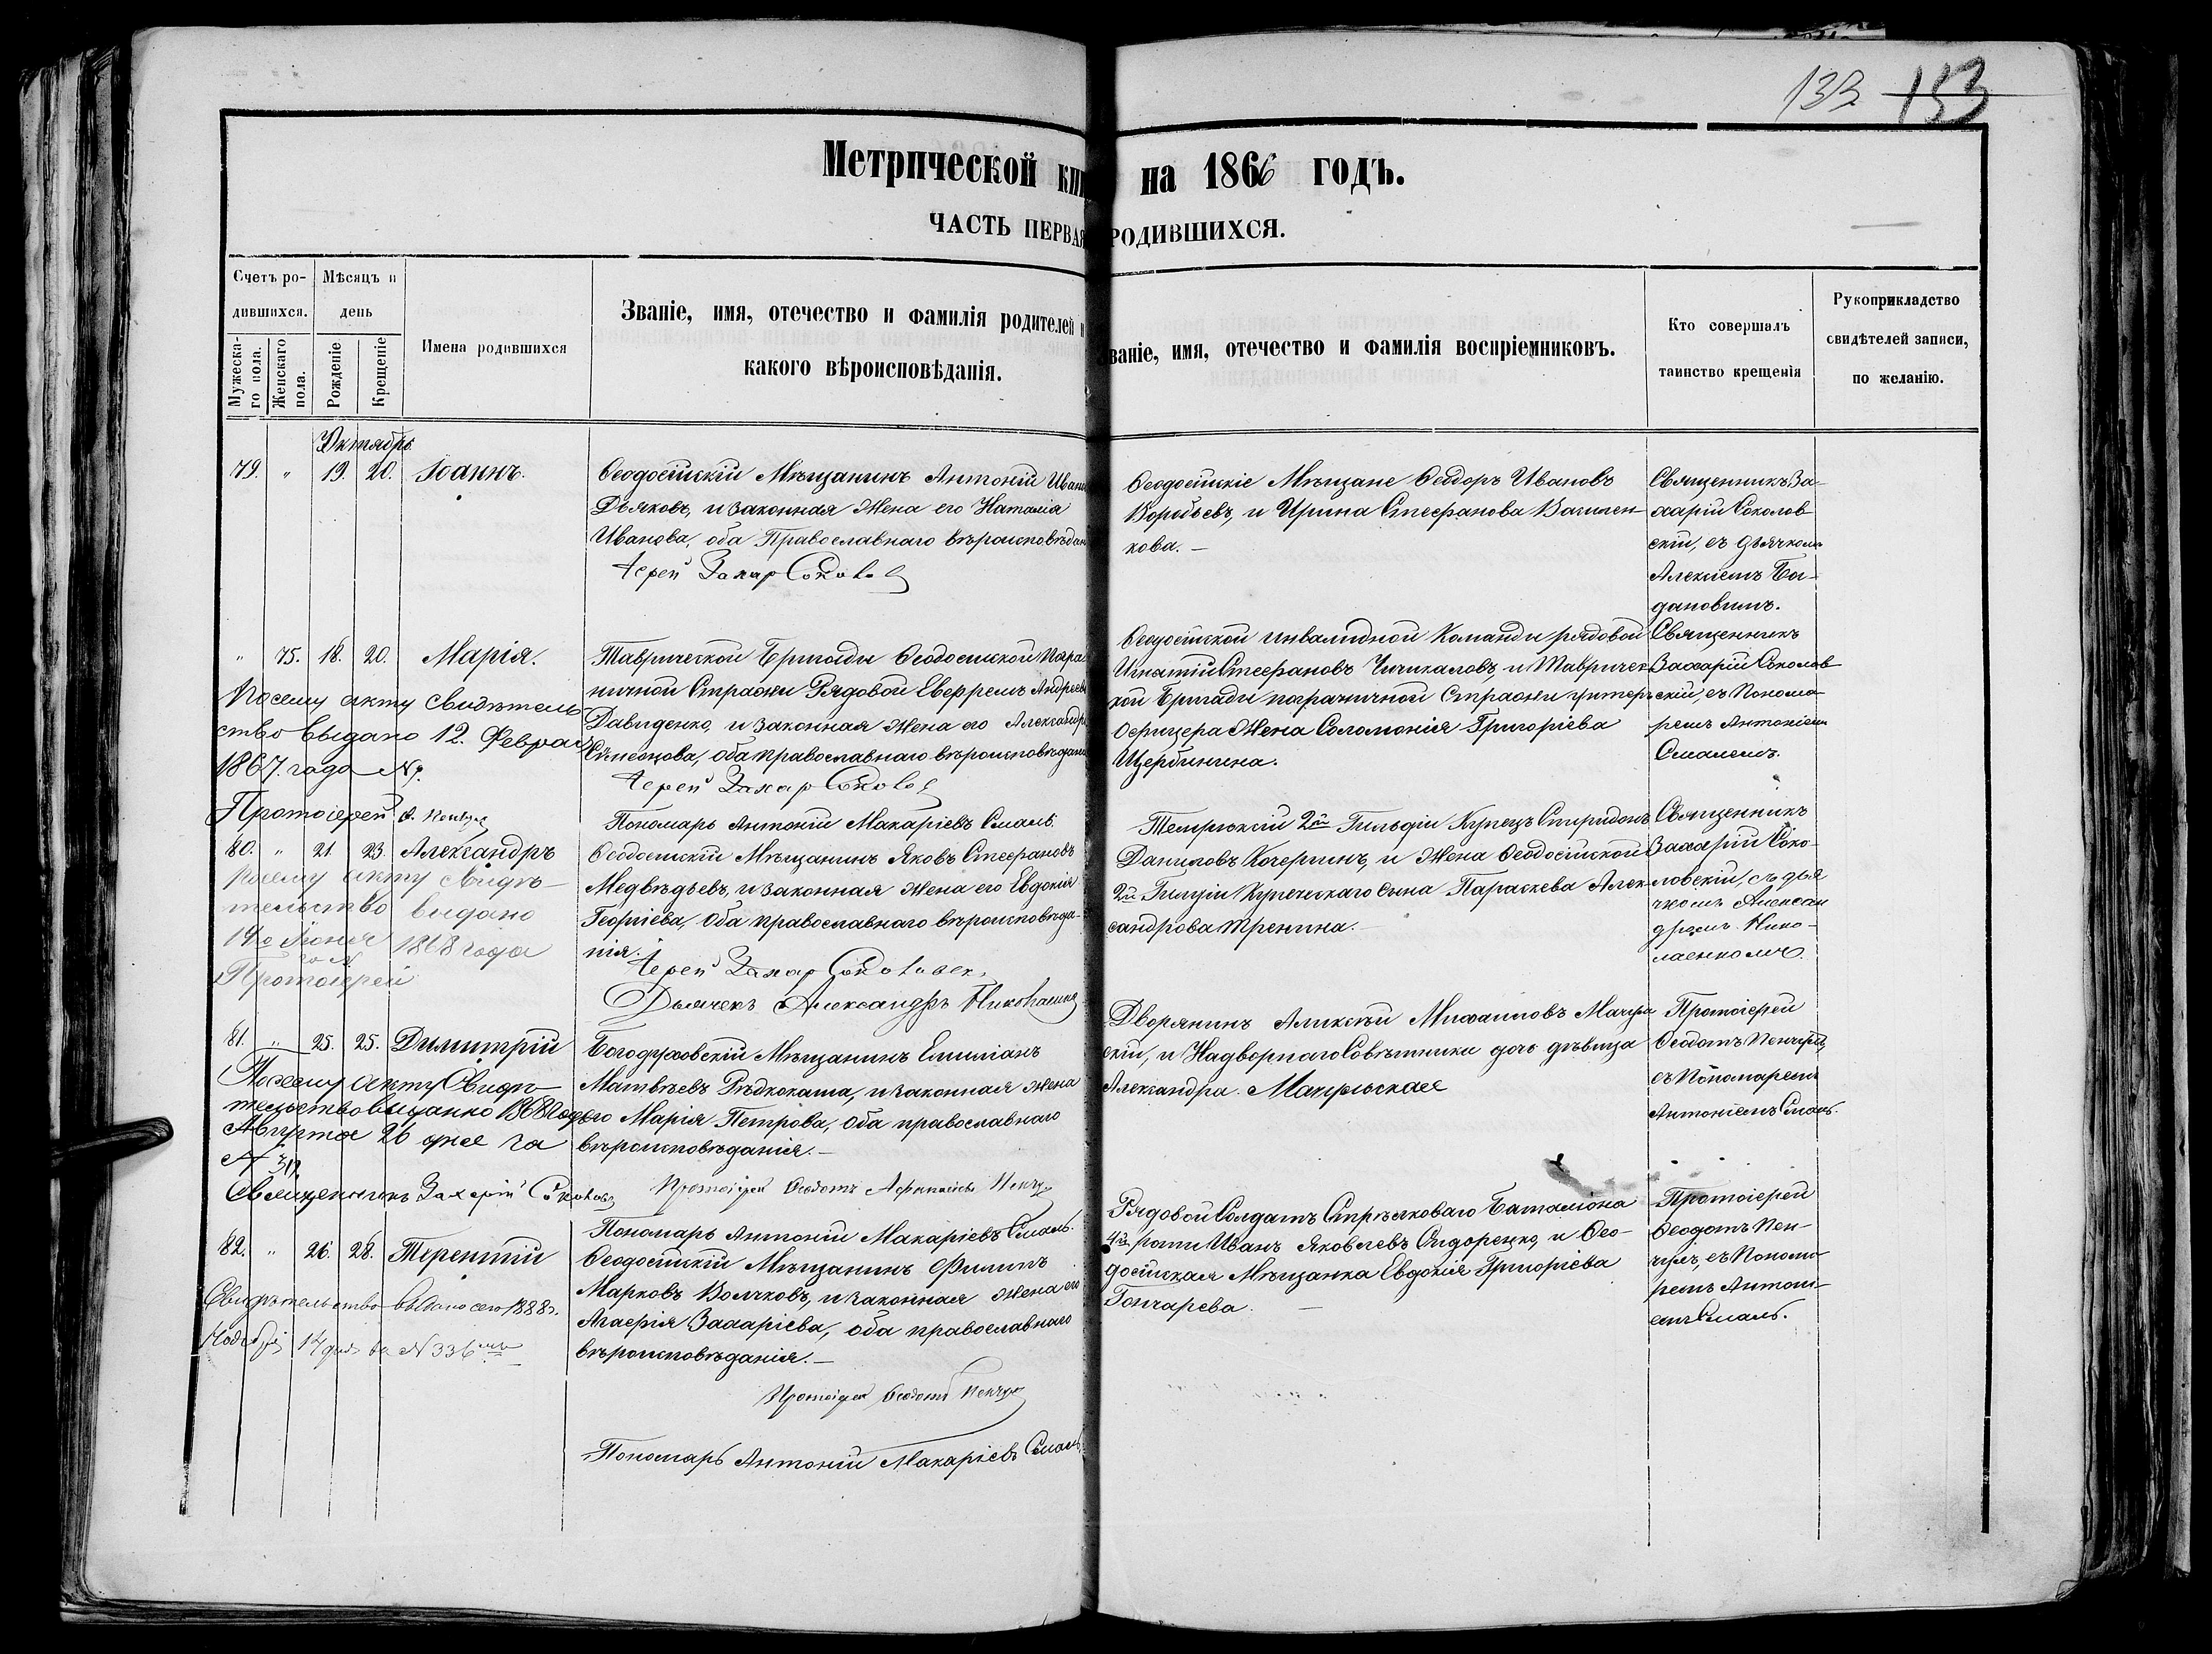 133 153
Метрической кни на 1866 годъ.
ЧАСТЬ ПЕРВАЯ РОДИВШИХСЯ.
Счетъ ро-
дившихся.
Мѣсяцъ и
день
Мужеска-
го пола.
Женскаго
пола.
Рожденіе
Крещеніе
Имена родившихся
Званіе, имя, отечество и фамилія родителей и
какого вѣроисповѣданія.
ваніе, имя, отечество и фамилія воспріемниковъ.
Кто совершалъ
таинство крещенія
Рукоприкладство
свидѣтелей записи,
по желанію.
Октябрь
79. " 19. 20. Іоаннъ.
Ѳеодосійскій Мѣщанинъ Антоній Ивано
Дьяковъ, и законная Жена его Наталія
Иванова, оба Православнаго вѣроисповѣдан
Іерей Захар Соколов
Ѳеодосійскіе Мѣщане Ѳеодоръ Ивановъ
Воробьевъ, и Ирина Стефанова Васильен
кова. —
Священникъ За-
харій Соколов
скій, съ дьячкомъ
Алексіемъ Бог-
дановымъ.
" 75. 18. 20. Марія.
Таврической Бригады Ѳеодосійской Погра
ничной Стражи Рядовой Евфремъ Андреевъ
Давиденко, и законная Жена его Александра
Симеонова, оба православнаго вѣроисповѣдан
Іерей Захар Соколов
Пономарь Антоній Макаріевъ Смаль.
Ѳеодосійской инвалидной Команды рядовой
Игнатій Стефановъ Чичкаловъ, и Тавричес
кой Бригады пограничной Стражи унтеръ
Офицера Жена Соломонія Григоріева
Щербинина.
Священникъ
Захарій Соколов
скій, съ Понома-
ремъ Антоніемъ
Смалемъ.
По сему акту свидѣтель
ство выдано 12. Феврал
1867. года №.
Протоіерей Ѳ. Пенчул
80. " 21. 23. Александръ
Ѳеодосійскій Мѣщанинъ Яковъ Стефановъ
Медвѣдьевъ, и законная Жена его Евдокія
Георгіева, Оба православнаго вѣроисповѣда-
нія.
Іерей Захар Соколовск.
Дьячекъ Александръ Николаенко
Темрюкскій 2й Гильдіи Купецъ Спиридонъ
Даниловъ Кочергинъ, и Жена Ѳеодосійской
2й Гильдіи Купеческаго сына Параскева Алек
сандрова Тренина. —
Священникъ
Захарій Соко-
ловскій, съ дья
чкомъ Алексан
дромъ Нико-
лаенкомъ.
По сему акту свидѣ-
тельство выдано
14го Іюня 1868 года
Протоіерей
81. " 25. 25. Димитрій
Богодуховскій Мѣщанинъ Емиліанъ
Матвѣевъ Рѣдкокаша, и законная Жена
его Марія Петрова, Оба православнаго
вѣроисповѣданія. —
Протоіерей Ѳеодотъ Афанасіевъ Пенчул
Пономарь Антоній Макаріевъ Смаль.
Дворянинъ Алексѣй Михаиловъ Мачуль
скій, и Надворнаго Совѣтника дочь дѣвица
Александра Мачульская
Протоіерей
Ѳеодотъ Пенчулъ,
съ Пономаремъ
Антоніемъ Смаль.
По сему акту Свидѣ-
тельство выданно 1868 года
Августа 26 дня за
№ 319.
Священникъ Захарій Соколов
82. " 26. 28. Терентій
Ѳеодосійскій Мѣщанинъ Филиппъ
Марковъ Волчковъ, и законная Жена его
Агафія Захаріева, оба православнаго
вѣроисповѣданія. —
Протоіерей Ѳеодотъ Пенчул
Пономарь Антоній Макаріевъ Смаль.
Рядовой Солдатъ Стрѣлковаго Баталіона
4й роты Иванъ Яковлевъ Сидоренко, и Ѳео-
досійская Мѣщанка Евдокія Григоріева
Гончарева. —
Протоіерей
Ѳеодотъ Пен-
чулъ, съ Понома-
ремъ Антоні-
емъ Смаль.
Свидѣтельство выдано сего 1888 г.
Ноября 14 дня за № 336